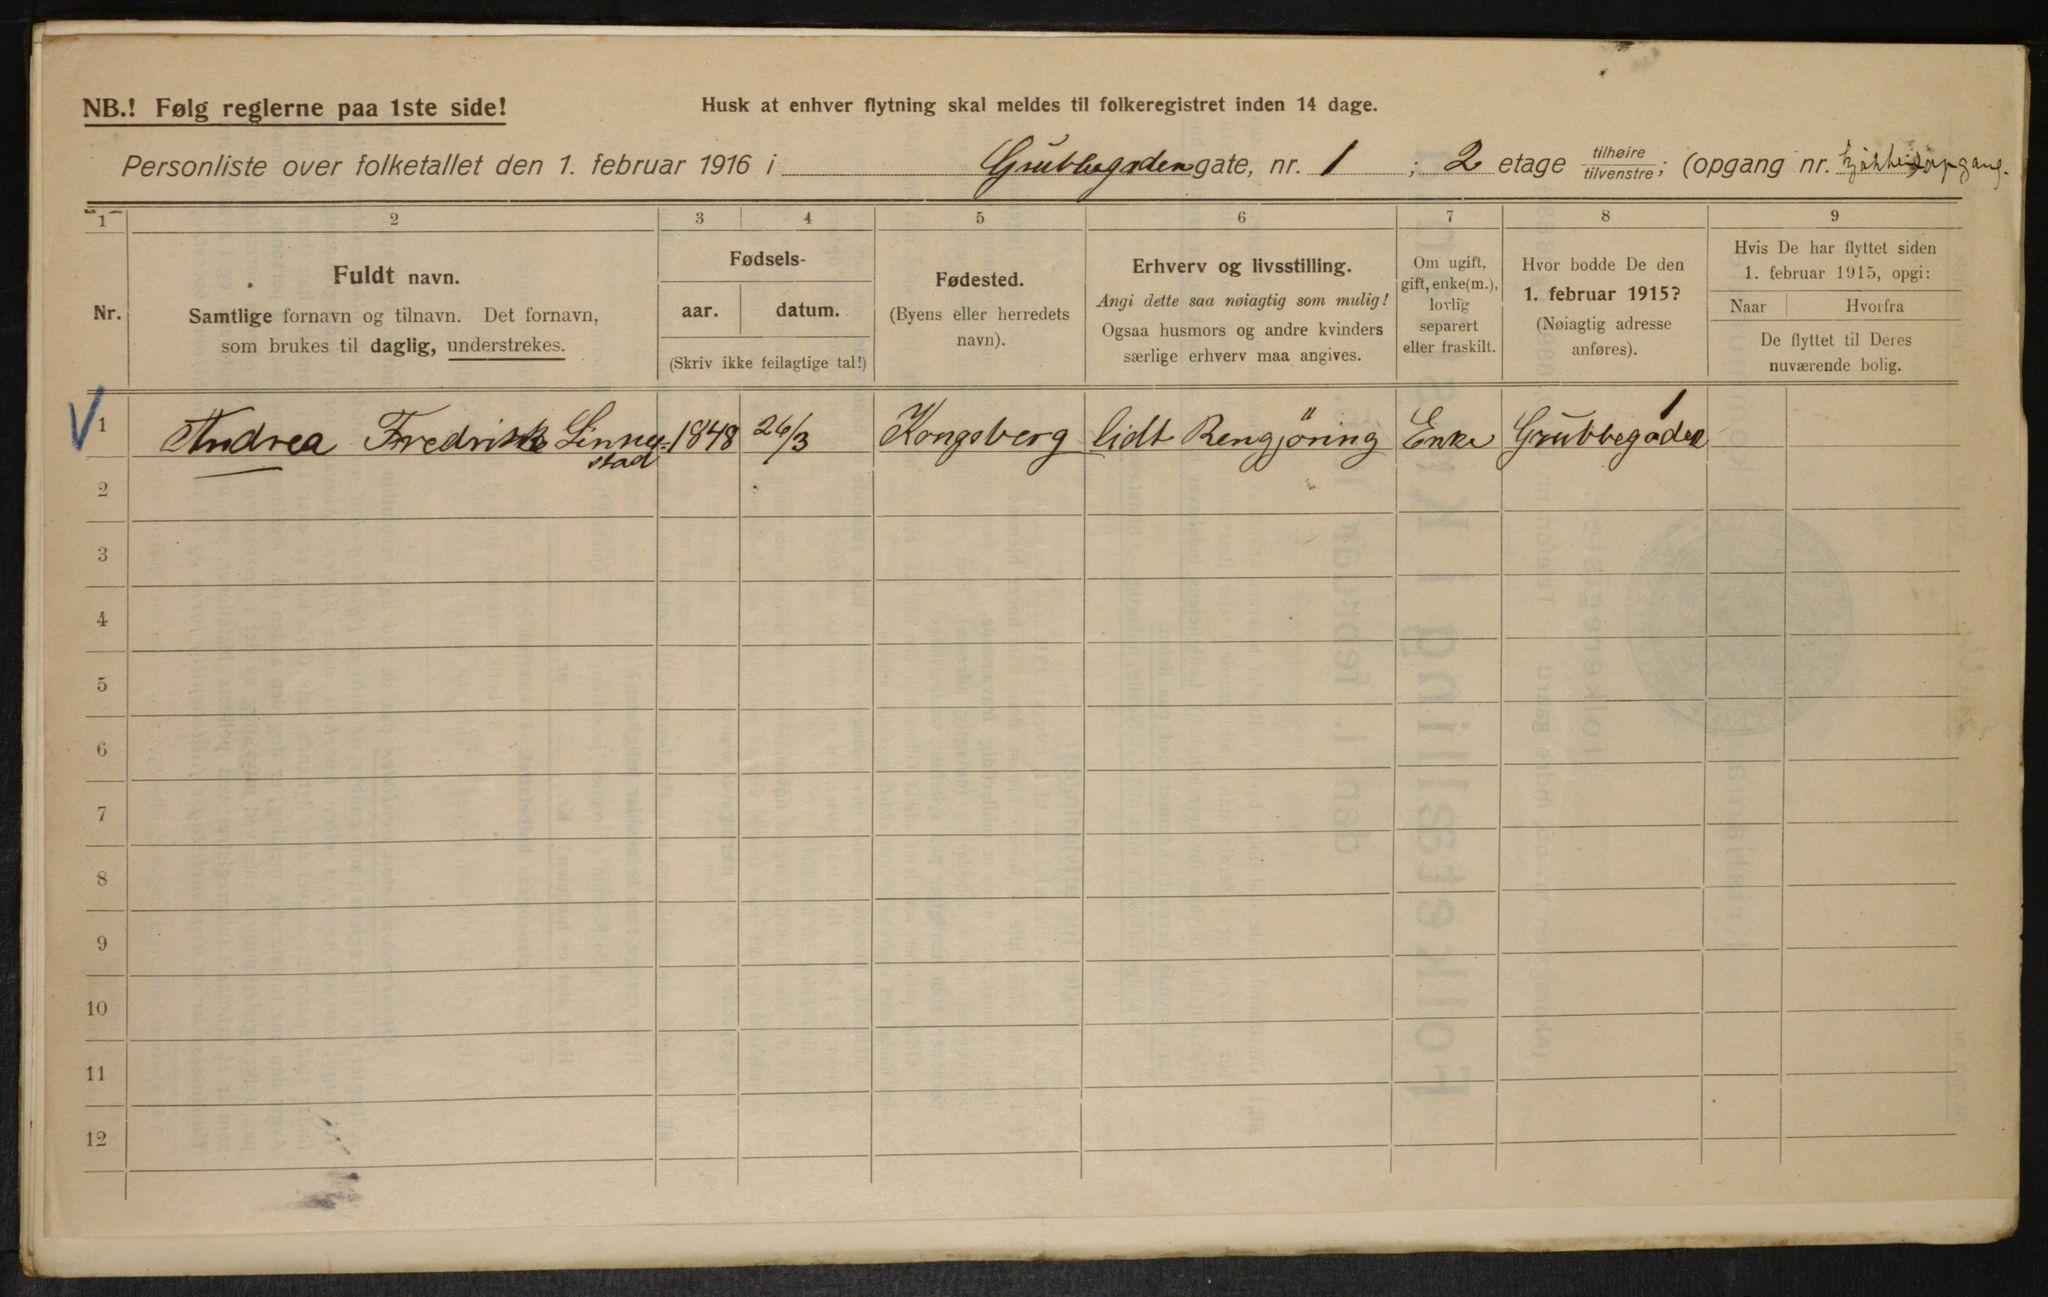 NB.! Følg reglerne paa 1ste side!
Husk at enhver flytning skal meldes til folkeregistret inden 14 dage.
Personliste over folketallet den 1. februar 1916 i Grubbegaden gate, nr. 1 ; 2 etage tilhøire tilvenstre; (opgang nr. Kjøkkenopgang.
1 2 3 4 5 6 7 8 9
Nr.
Fuldt navn.
Samtlige fornavn og tilnavn. Det fornavn,
som brukes til daglig, understrekes.
Fødsels-
aar. datum.
(Skriv ikke feilagtige tal!)
Fødested.
(Byens eller herredets
navn).
Erhverv og livsstilling.
Angi dette saa nøiagtig som mulig!
Ogsaa husmors og andre kvinders
særlige erhverv maa angives.
Om ugift,
gift, enke(m.),
lovlig
separert
eller fraskilt.
Hvor bodde De den
1. februar 1915?
(Nøiagtig adresse
anføres).
Hvis De har flyttet siden
1. februar 1915, opgi:
Naar Hvorfra
De flyttet til Deres
nuværende bolig.
1 Andrea Fredrikke Linnestad 1848 26/3 Kongsberg lidt Rengjöring Enke Grubbegaden 1
2
3
4
5
6
7
8
9
10
11
12